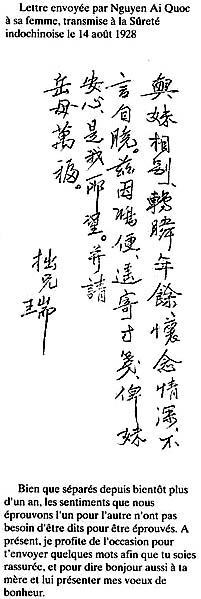 Lettre envoyée par Nguyen Ai Quoc
à sa femme, transmise à la Sûreté
indochinoise le 14 août 1928
與妹相別、轉瞬年餘、懷念情深、不
言自曉。茲因鴻便、遙寄寸箋、俾妹
安心是我所望。并請
岳母萬福。
拙兄
瑞
Bien que séparés depuis bientôt plus
d'un an, les sentiments que nous
éprouvons l'un pour l'autre n'ont pas
besoin d'être dits pour être éprouvés. A
présent, je profite de l'occasion pour
t'envoyer quelques mots afin que tu soies
rassurée, et pour dire bonjour aussi à ta
mère et lui présenter mes voeux de
bonheur.